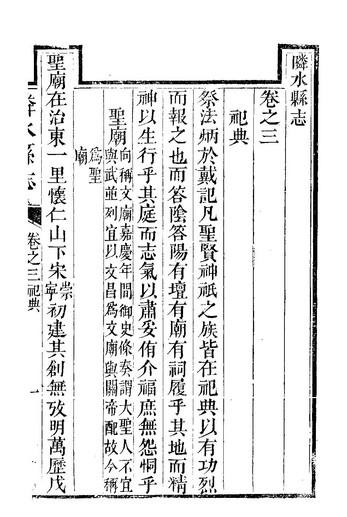 隣水縣志
卷之三
祀典
祭法炳於戴記凡聖賢神祇之族皆在祀典以有功烈
而報之也而答陰答陽有壇有廟有祠履乎其地而精
神以生行乎其庭而志氣以肅妥侑介福庶無怨恫乎
聖廟向稱文廟嘉慶年間御史條奏謂大聖人不宜
與武並列宜以文昌為文廟與關帝配故今稱
為聖
廟
聖廟在治東一里懷仁山下宋崇寧初建其創無攷明萬歷戊
隣水縣志
卷之三祀典
一